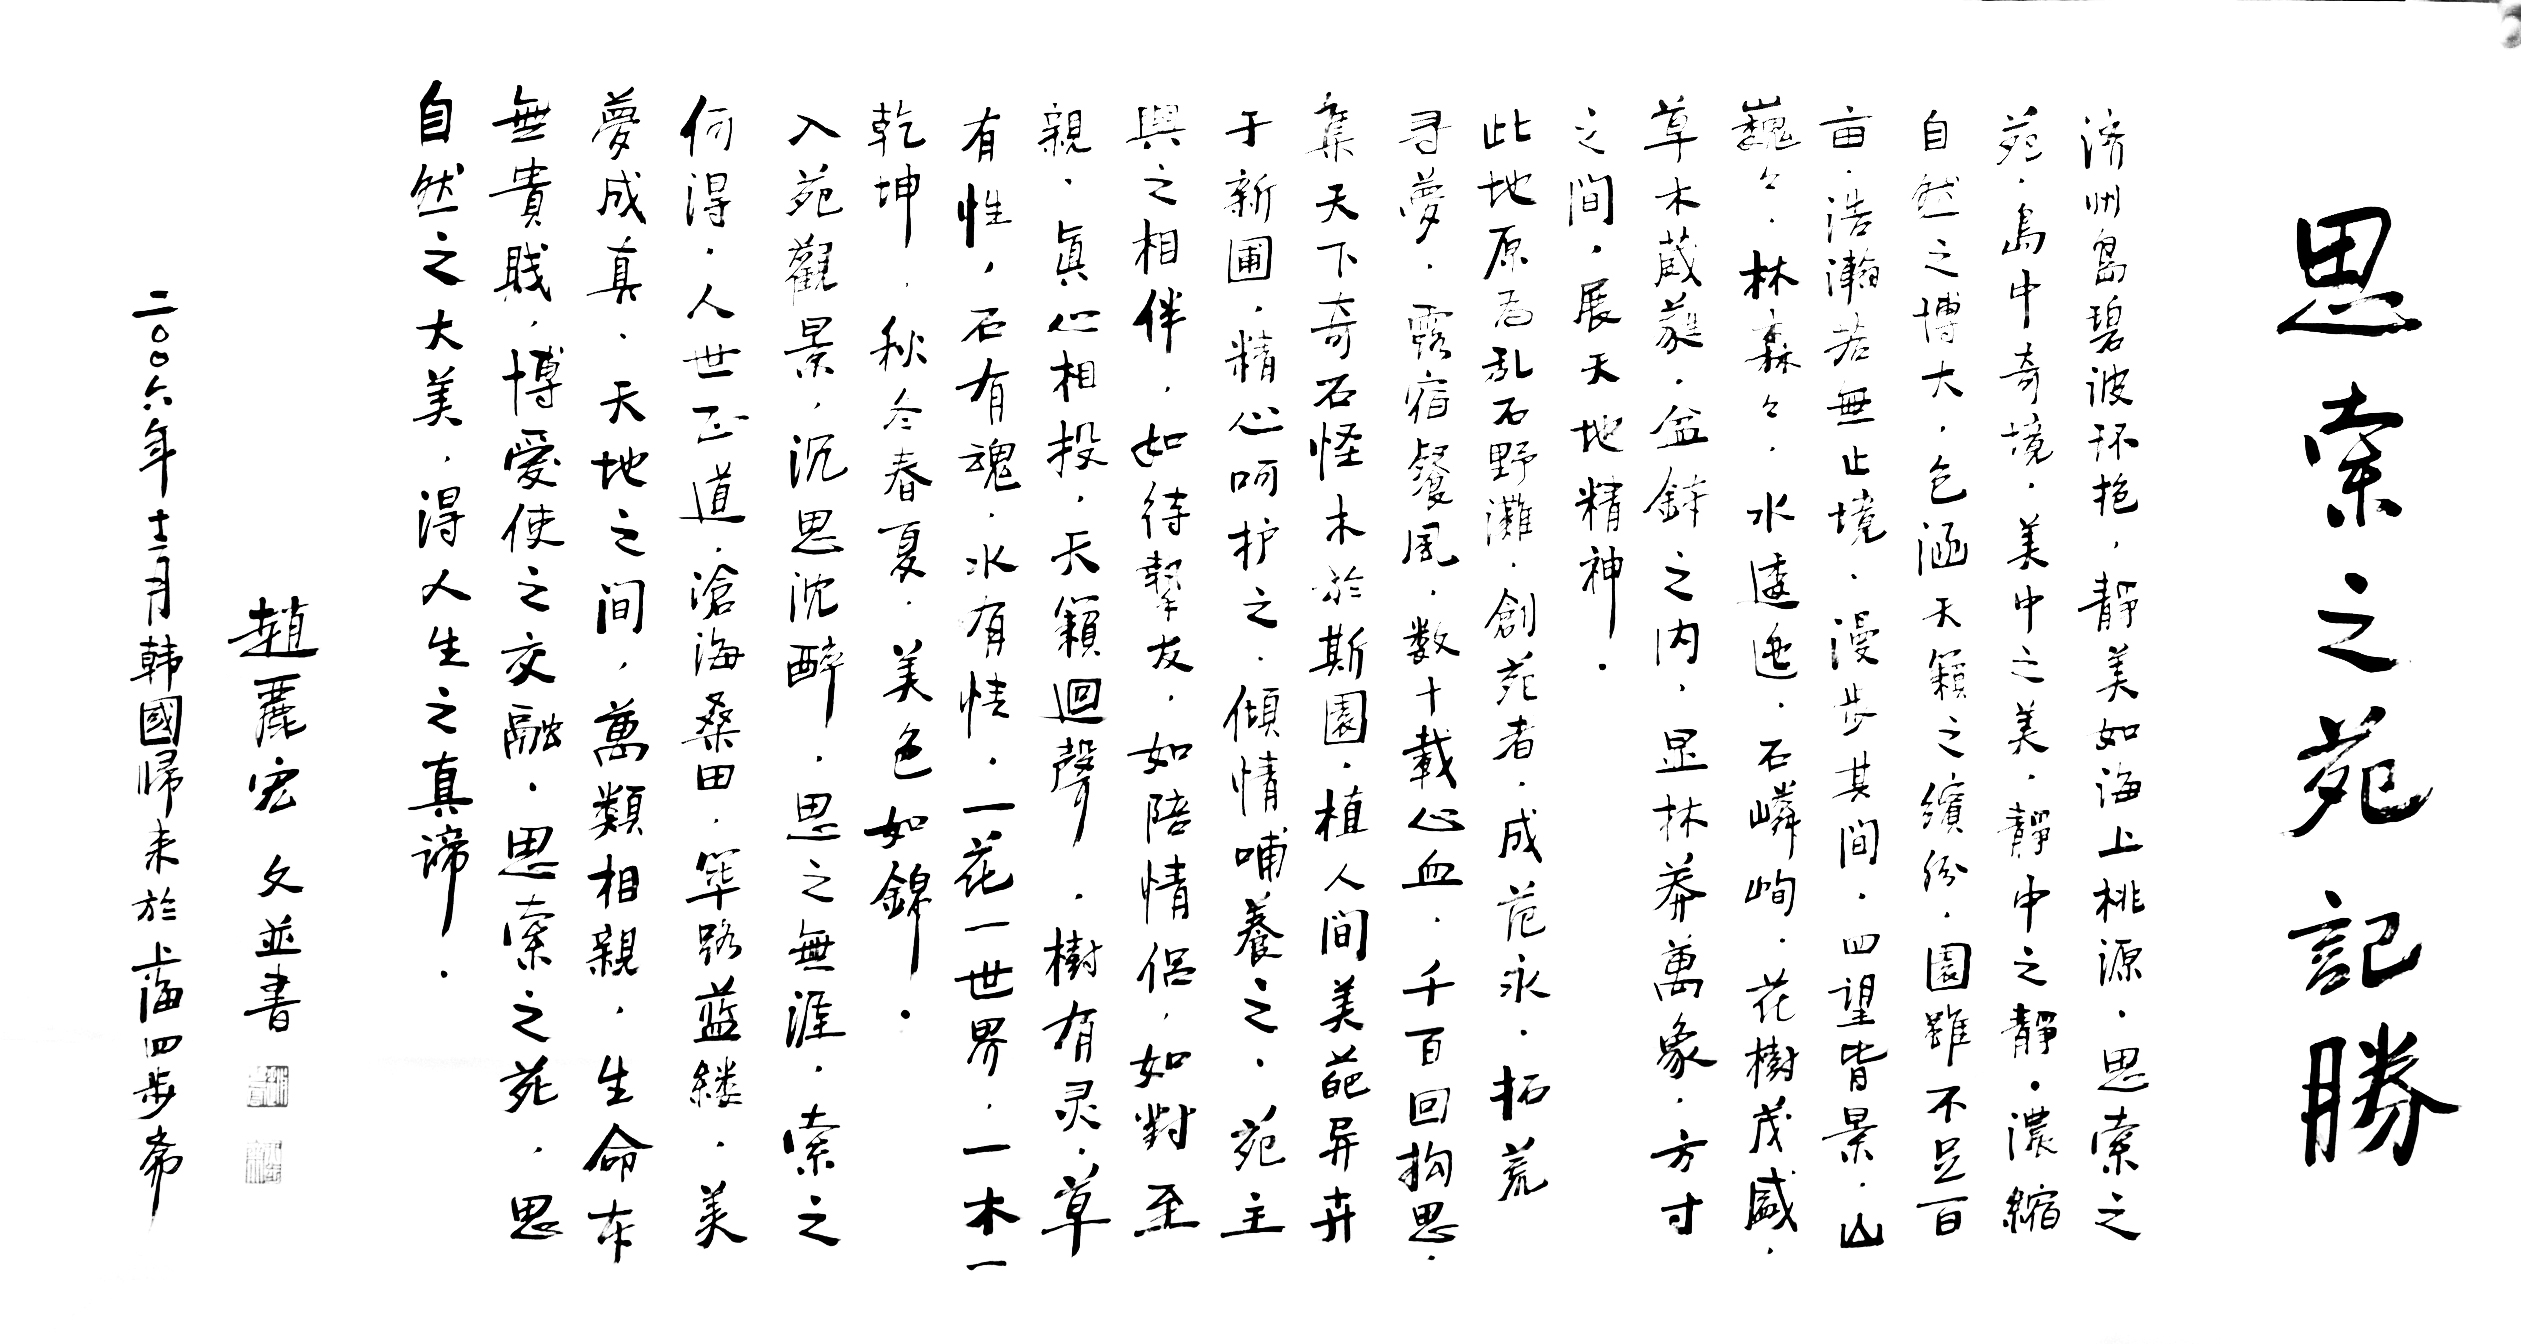 思索之苑記勝
济州島碧波环抱，靜美如海上桃源．思索之
苑．島中奇境．美中之美．靜中之靜．濃縮
自然之博大．包涵天籟之繽紛．園雖不足百
亩．浩瀚若無止境．漫步其间．四望皆景．山
巍々．林森々．水逶迤．石嶙峋．花樹茂盛．
草木葳蕤．盆缽之内，显林莽萬象．方寸
之间，展天地精神．
此地原為乱石野灘．創苑者．成范永．拓荒
寻夢．露宿餐风．数十載心血．千百回构思．
集天下奇石怪木於斯園．植人间美葩异卉
于新圃．精心呵护之．傾情哺養之．苑主
與之相伴．如待摯友．如陪情侣．如對至
親．眞心相投．天籟迴聲．樹有灵．草
有性，石有魂．水有情．一花一世界．一木一
乾坤．秋冬春夏．美色如錦．
入苑觀景，沉思沈醉．思之無涯．索之
何得．人世正道．滄海桑田．筚路蓝缕．美
夢成真．天地之间，萬類相親，生命本
無貴賤．博愛使之交融．思索之苑．思
自然之大美．得人生之真谛．
趙麗宏 文並書
二〇〇六年十二月韩國歸来於上海四步斋